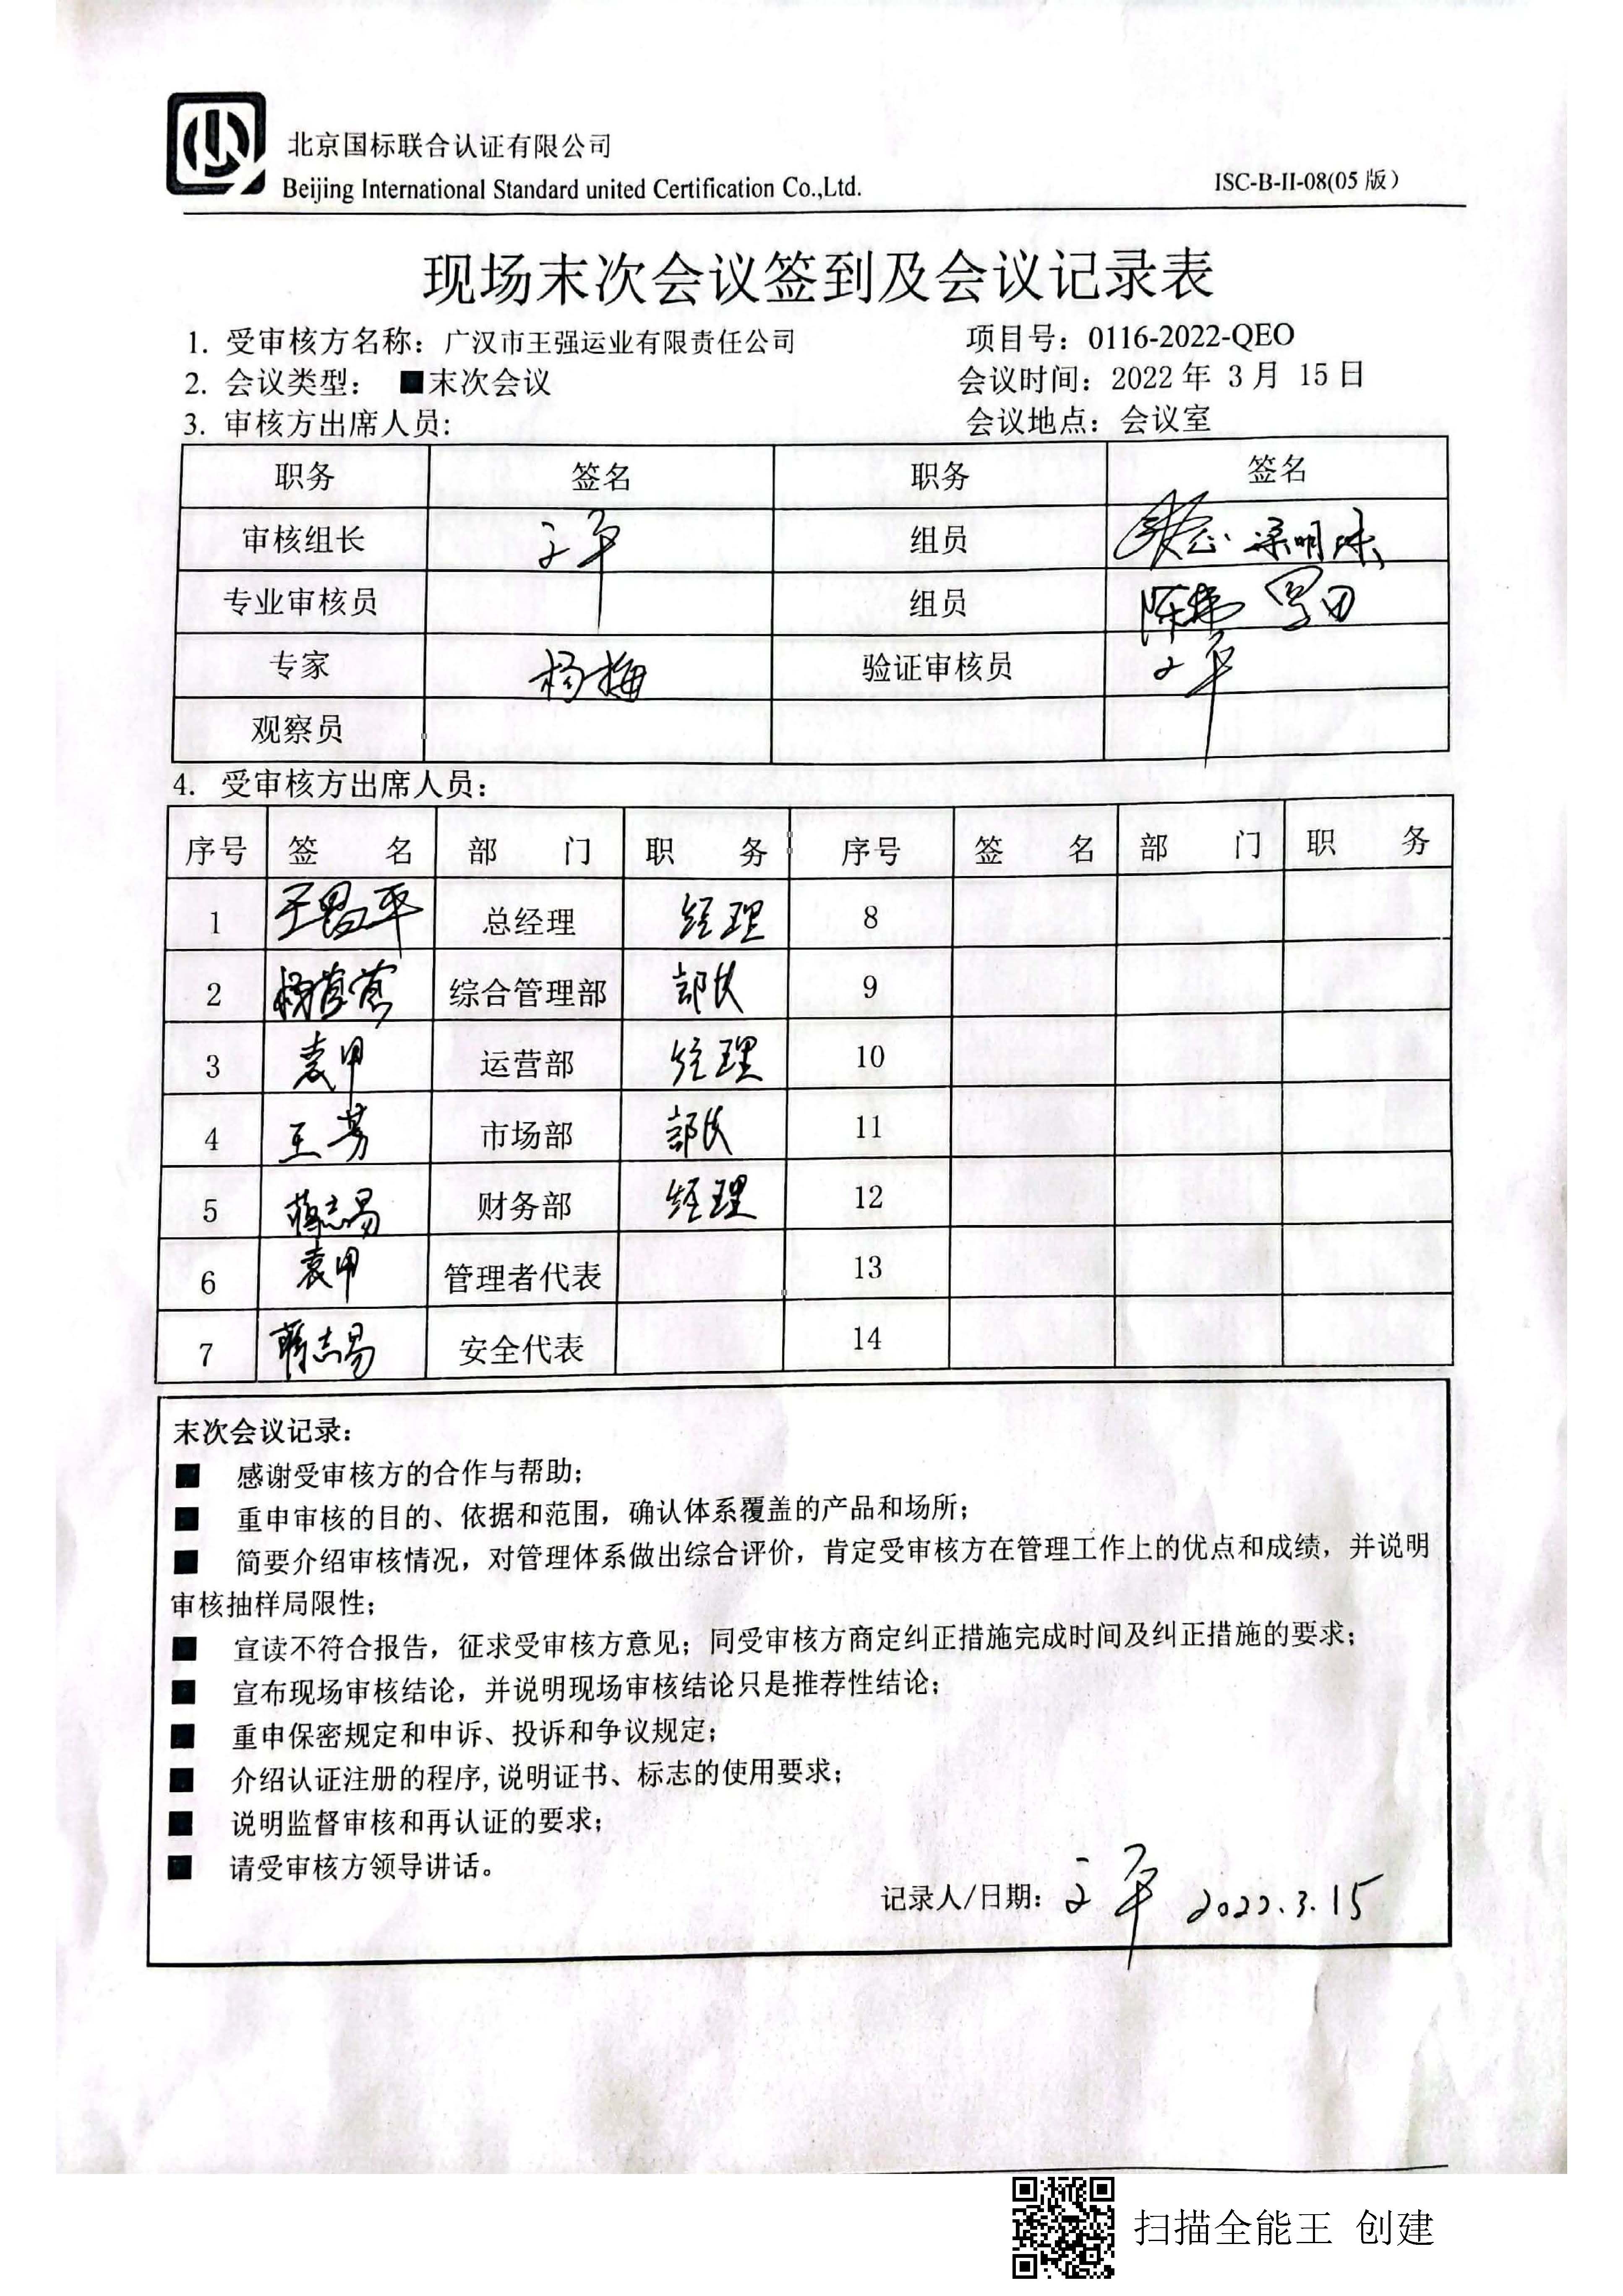 北京国标联合认证有限公司
Beijing International Standard united Certification Co.,Ltd.
ISC-B-II-08(05 版)
现场末次会议签到及会议记录表
1. 受审核方名称：广汉市王强运业有限责任公司 项目号：0116-2022-QEO
2. 会议类型： ■末次会议 会议时间：2022 年 3 月 15 日
3. 审核方出席人员: 会议地点：会议室
职务 签名 职务 签名
审核组长 文平 组员
专业审核员 组员
专家 杨梅 验证审核员 文平
观察员
4. 受审核方出席人员：
序号 签 名 部 门 职 务 序号 签 名 部 门 职 务
1 总经理 经理 8
2 综合管理部 部长 9
3 袁甲 运营部 经理 10
4 王芳 市场部 部长 11
5 蒋志易 财务部 经理 12
6 袁甲 管理者代表 13
7 蒋志易 安全代表 14
末次会议记录：
■ 感谢受审核方的合作与帮助；
■ 重申审核的目的、依据和范围，确认体系覆盖的产品和场所；
■ 简要介绍审核情况，对管理体系做出综合评价，肯定受审核方在管理工作上的优点和成绩，并说明
审核抽样局限性；
■ 宣读不符合报告，征求受审核方意见；同受审核方商定纠正措施完成时间及纠正措施的要求；
■ 宣布现场审核结论，并说明现场审核结论只是推荐性结论；
■ 重申保密规定和申诉、投诉和争议规定；
■ 介绍认证注册的程序,说明证书、标志的使用要求；
■ 说明监督审核和再认证的要求；
■ 请受审核方领导讲话。
记录人/日期：文平 2022.3.15
扫描全能王 创建